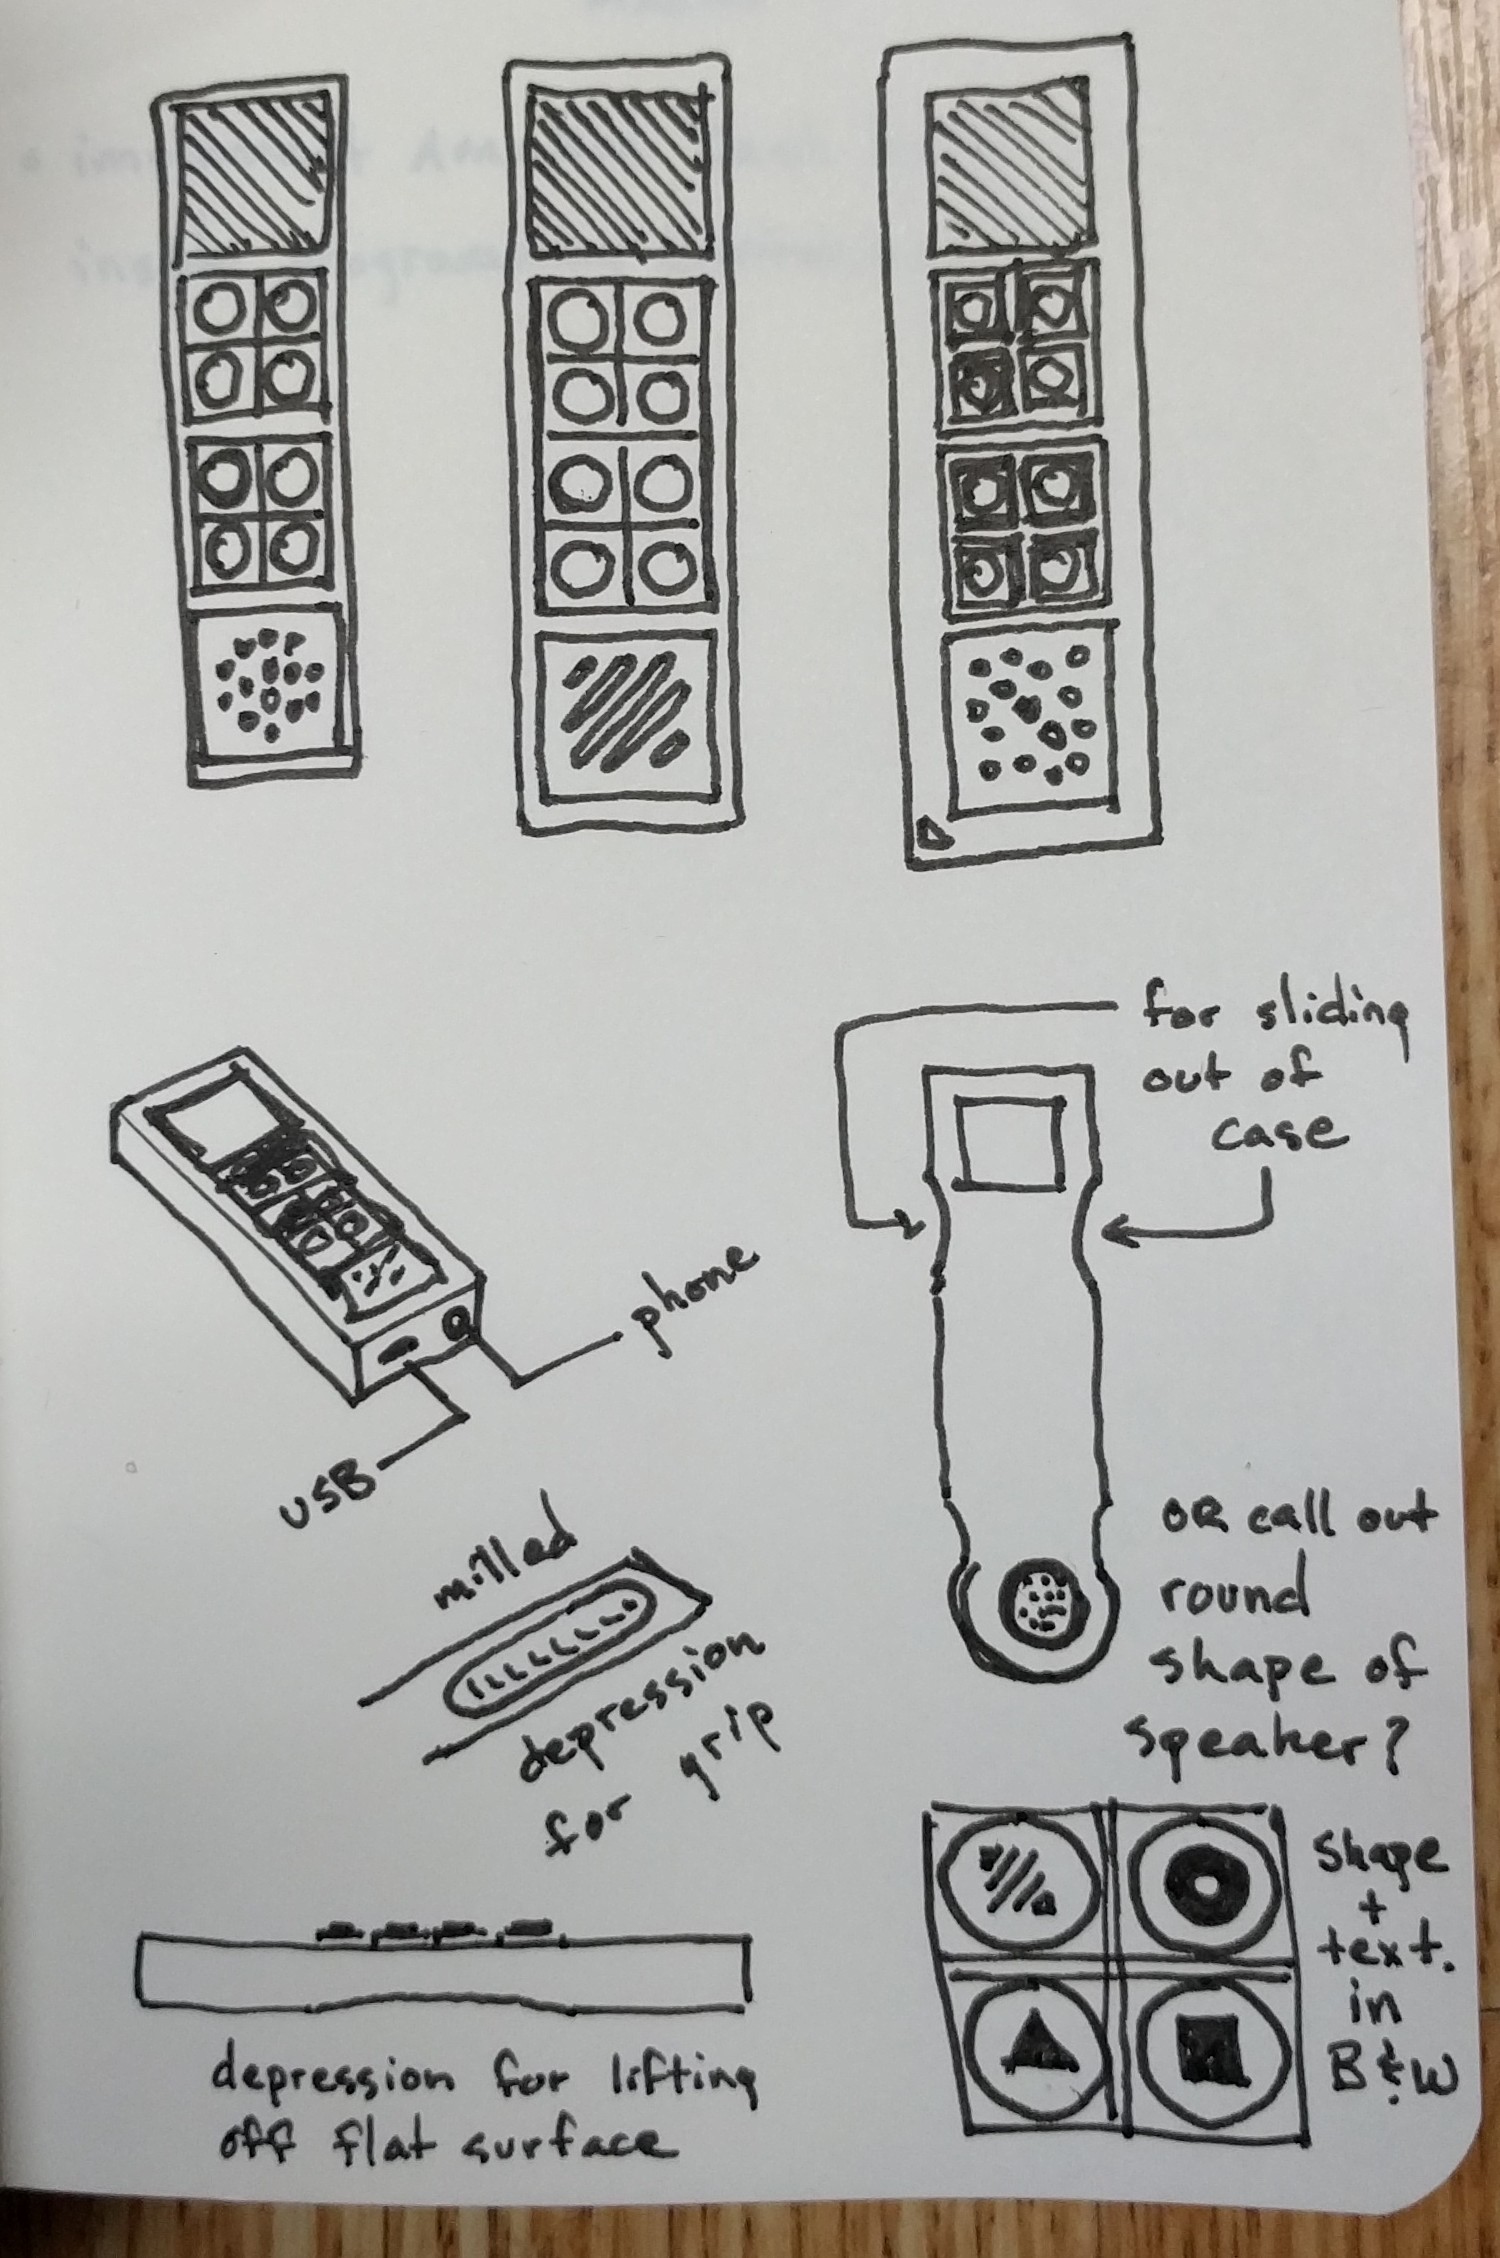 for sliding
out of
case
phone
USB
milled
depression
for grip
OR call out
round
shape of
speaker?
shape
+
text.
in
B&W
depression for lifting
off flat surface